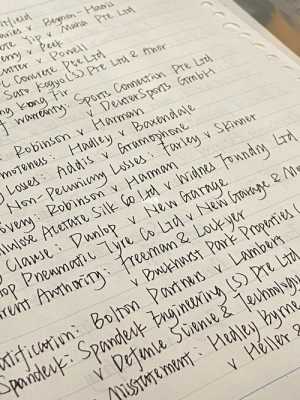 tfield
v Beynon-Harris
Tip v Maha Pte Ltd
v Peek
v Powell
Concrete Pte Ltd
Sato Kogyo (S) Pte Ltd & Anor
ong Kong Fir
f Warranty: Sports Connection Pte Ltd
v Deuter Sports GmbH
Robinson v Harman
moteness: Hadley v Baxendale
Loses: Addis v Gramophone
Non-Pecuniary Losses: Farley v Skinner
Robinson v Harman
llulose Acetate Silk Co Ltd v Widnes Foundry Ltd
Clause: Dunlop v New Garage
lop Pneumatic Tyre Co Ltd v New Garage & Mo
rent Authority: Freeman & Lockyer
v Buckhurst Park Properties
atification: Bolton Partners v Lambert
Spandeck: Spandeck Engineering (S) Pte Ltd
v Defence Science & Technology
Misstatement: Hedley Byrne
v Heller &